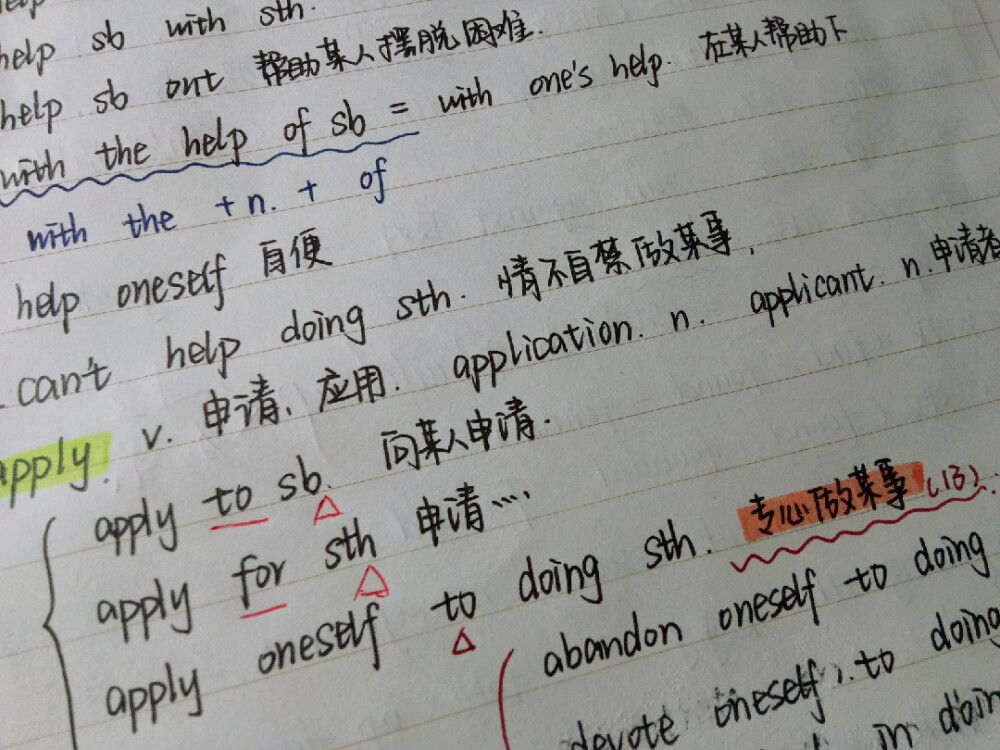 help
help sb with sth.
help sb out 帮助某人摆脱困难.
with the help of sb = with one's help. 在某人帮助下
with the + n. + of
help oneself 自便
can't help doing sth. 情不自禁做某事.
apply. v. 申请、应用. application. n. applicant. n. 申请者
apply to sb. 向某人申请.
apply for sth 申请...
apply oneself to doing sth. 专心做某事 (13)
abandon oneself to doing
devote oneself to doing
in doin